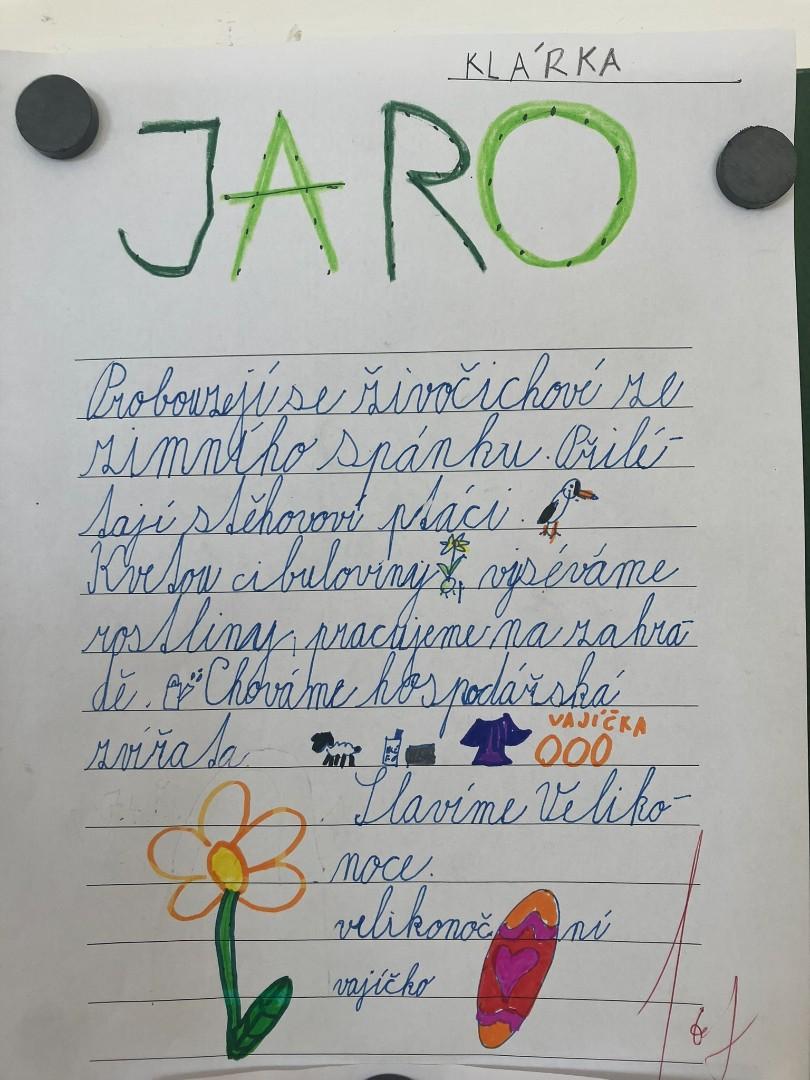 KLÁRKA
JARO
Probouzejí se živočichové ze
zimního spánku. Přilé-
tají stěhovoví ptáci.
Kvetou cibuloviny vyséváme
rostliny, pracujeme na zahra-
dě. Chováme hospodářská
zvířata
VAJÍČKA
Slavíme Veliko-
noce.
velikonoční
vajíčko
1